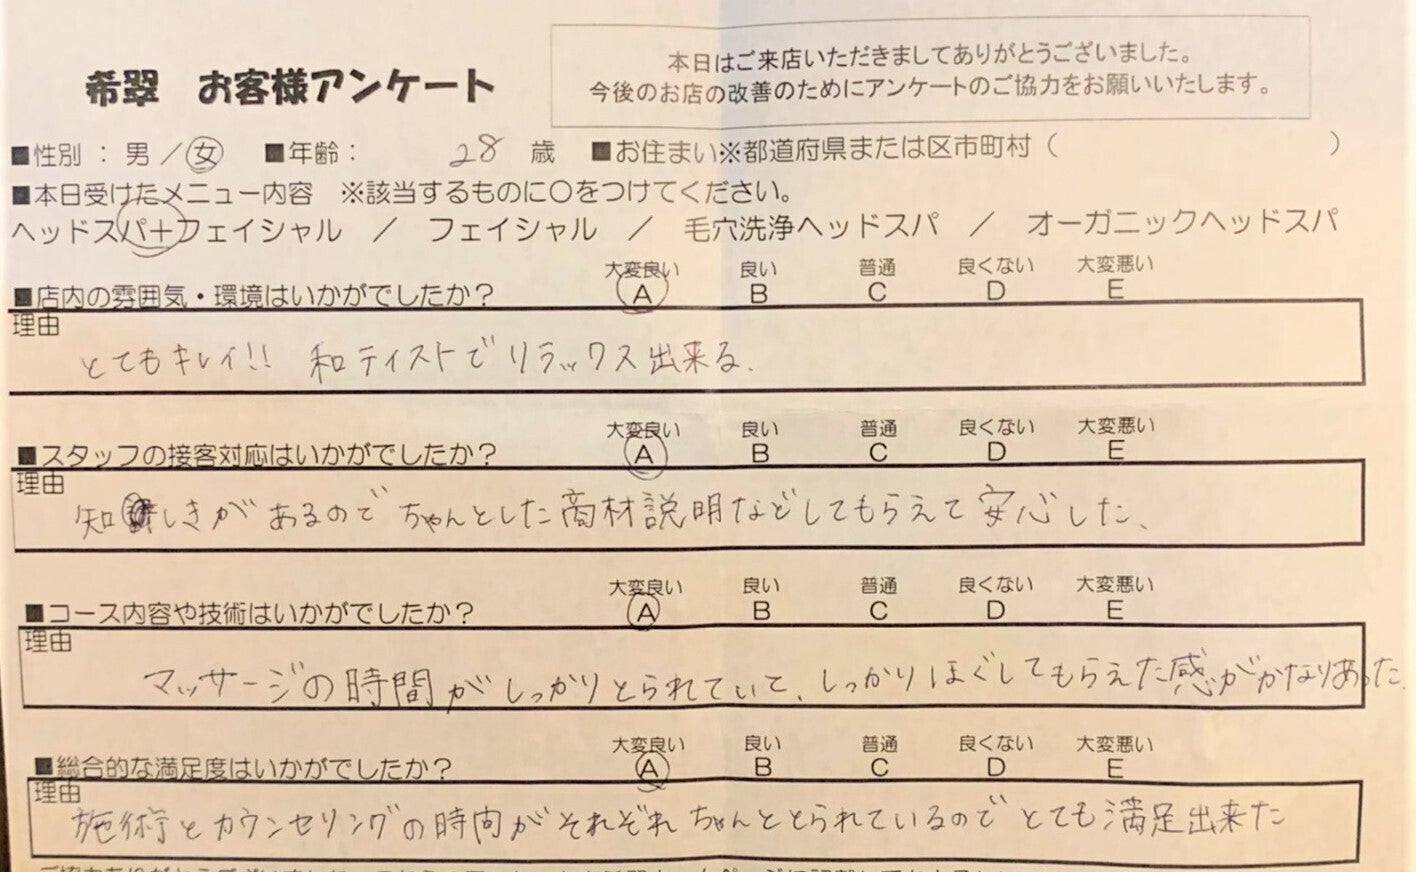 本日はご来店いただきましてありがとうございました。
今後のお店の改善のためにアンケートのご協力をお願いいたします。
希翠 お客様アンケート
■性別：男／女 ■年齢： 28 歳 ■お住まい※都道府県または区市町村（ ）
■本日受けたメニュー内容 ※該当するものに〇をつけてください。
ヘッドスパ+フェイシャル ／ フェイシャル ／ 毛穴洗浄ヘッドスパ ／ オーガニックヘッドスパ
大変良い 良い 普通 良くない 大変悪い
■店内の雰囲気・環境はいかがでしたか？ A B C D E
理由
とてもキレイ!! 和ティストでリラックス出来る.
大変良い 良い 普通 良くない 大変悪い
■スタッフの接客対応はいかがでしたか？ A B C D E
理由
知しきがあるのでちゃんとした商材説明などしてもらえて安心した、
大変良い 良い 普通 良くない 大変悪い
■コース内容や技術はいかがでしたか？ A B C D E
理由
マッサージの時間がしっかりとられていて、しっかりほぐしてもらえた感がかなりあった.
大変良い 良い 普通 良くない 大変悪い
■総合的な満足度はいかがでしたか？ A B C D E
理由
施術とカウンセリングの時間がそれぞれちゃんととられているのでとても満足出来た